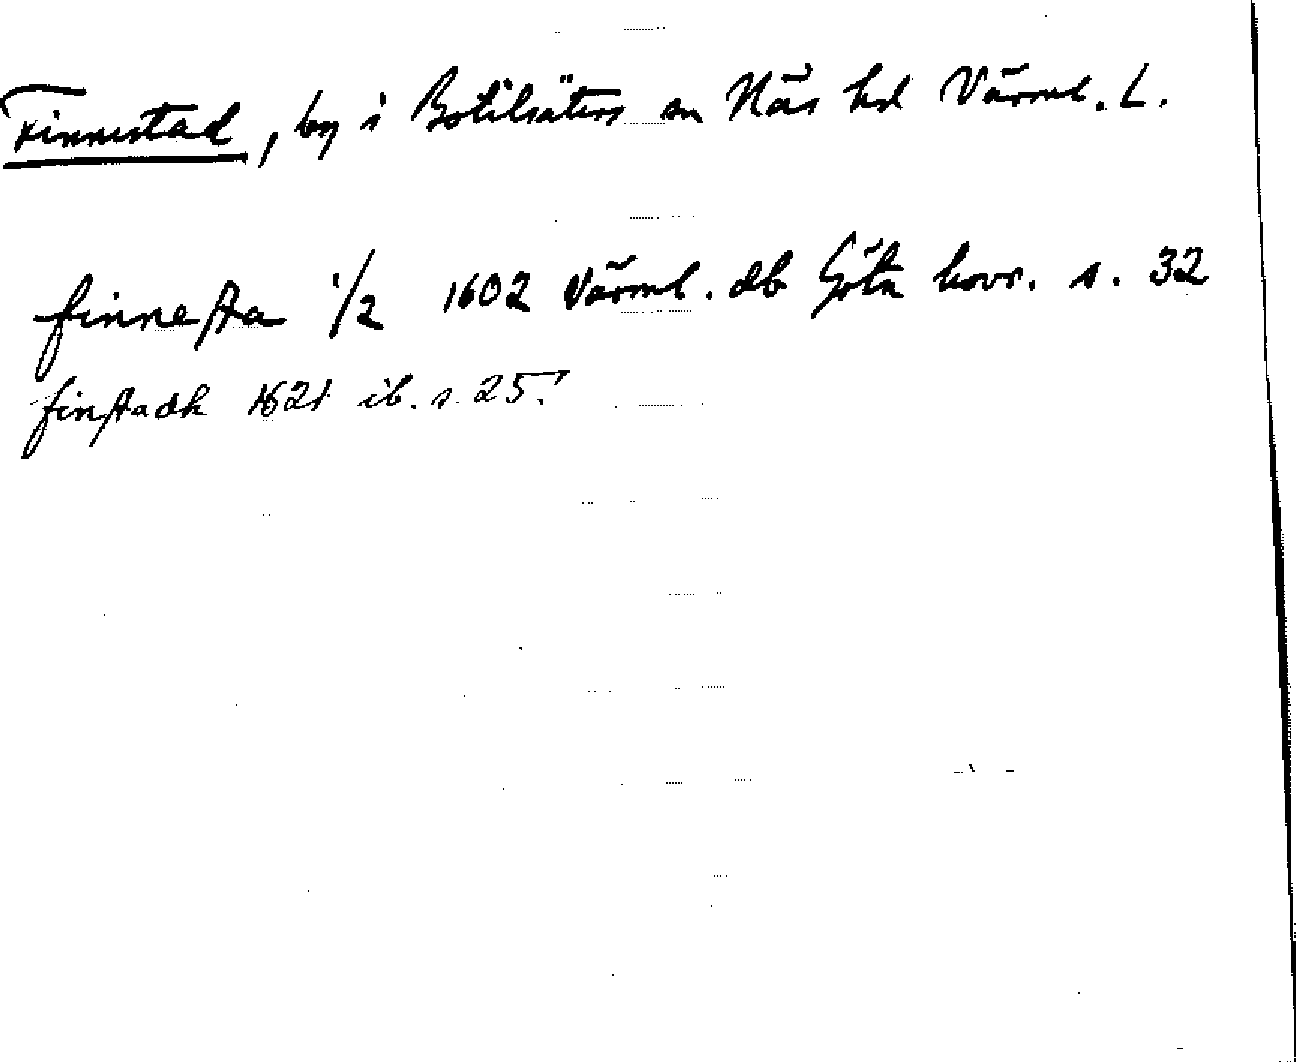 Finnestad, by i Botilsäters sn Näs hd Värml. L.
finnesta 1/2 1602 Värml. db Göta hovr. s. 32
finstadh 1621 ib. s. 25.